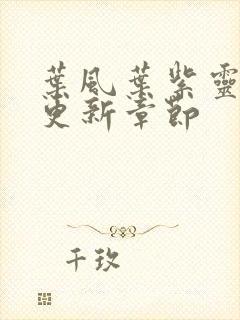 葉風葉紫靈
更新章節
千玫